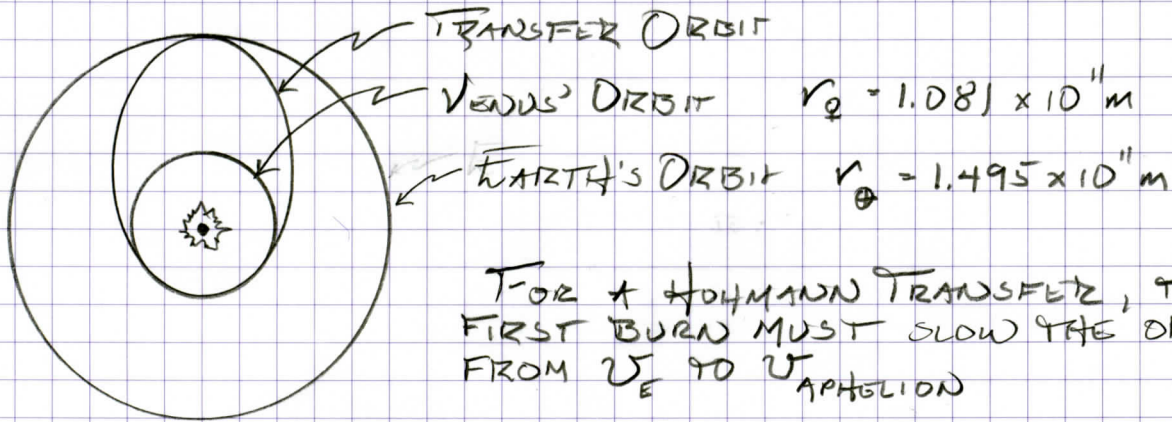 TRANSFER ORBIT
VENUS' ORBIT r♀ = 1.081 x 10¹¹ m
EARTH'S ORBIT r⊕ = 1.495 x 10¹¹ m
FOR A HOHMANN TRANSFER,
FIRST BURN MUST SLOW THE
FROM v_E TO v_APHELION